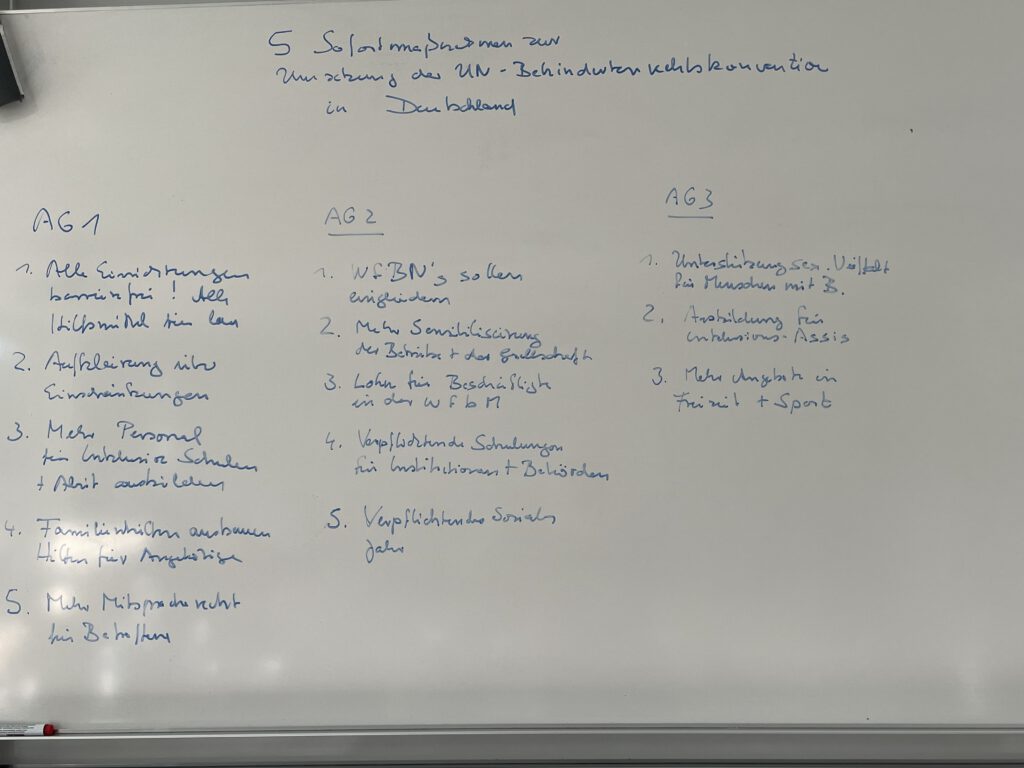 5 Sofortmaßnahmen zur
Umsetzung der UN-Behindertenrechtskonvention
in Deutschland
AG 1
1. Alle Einrichtungen
barrierefrei! Alle
Hilfsmittel für
2. Aufklärung über
Einschränkungen
3. Mehr Personal
für Inklusive Schulen
+ Arbeit ausbilden
4. Familienhilfen ausbauen
Hilfen für Angehörige
5. Mehr Mitspracherecht
für Betroffene
AG 2
1. sollen
eingliedern
2. Mehr Sensibilisierung
der Betriebe + der Gesellschaft
3. Lohn für Beschäftigte
in der WfbM
4. Verpflichtende Schulungen
für Institutionen + Behörden
5. Verpflichtendes Soziales
Jahr
AG 3
1. Unterstützung sex. Vielfalt
für Menschen mit B.
2. Ausbildung für
Inklusions-Assis
3. Mehr Angebote in
Freizeit + Sport